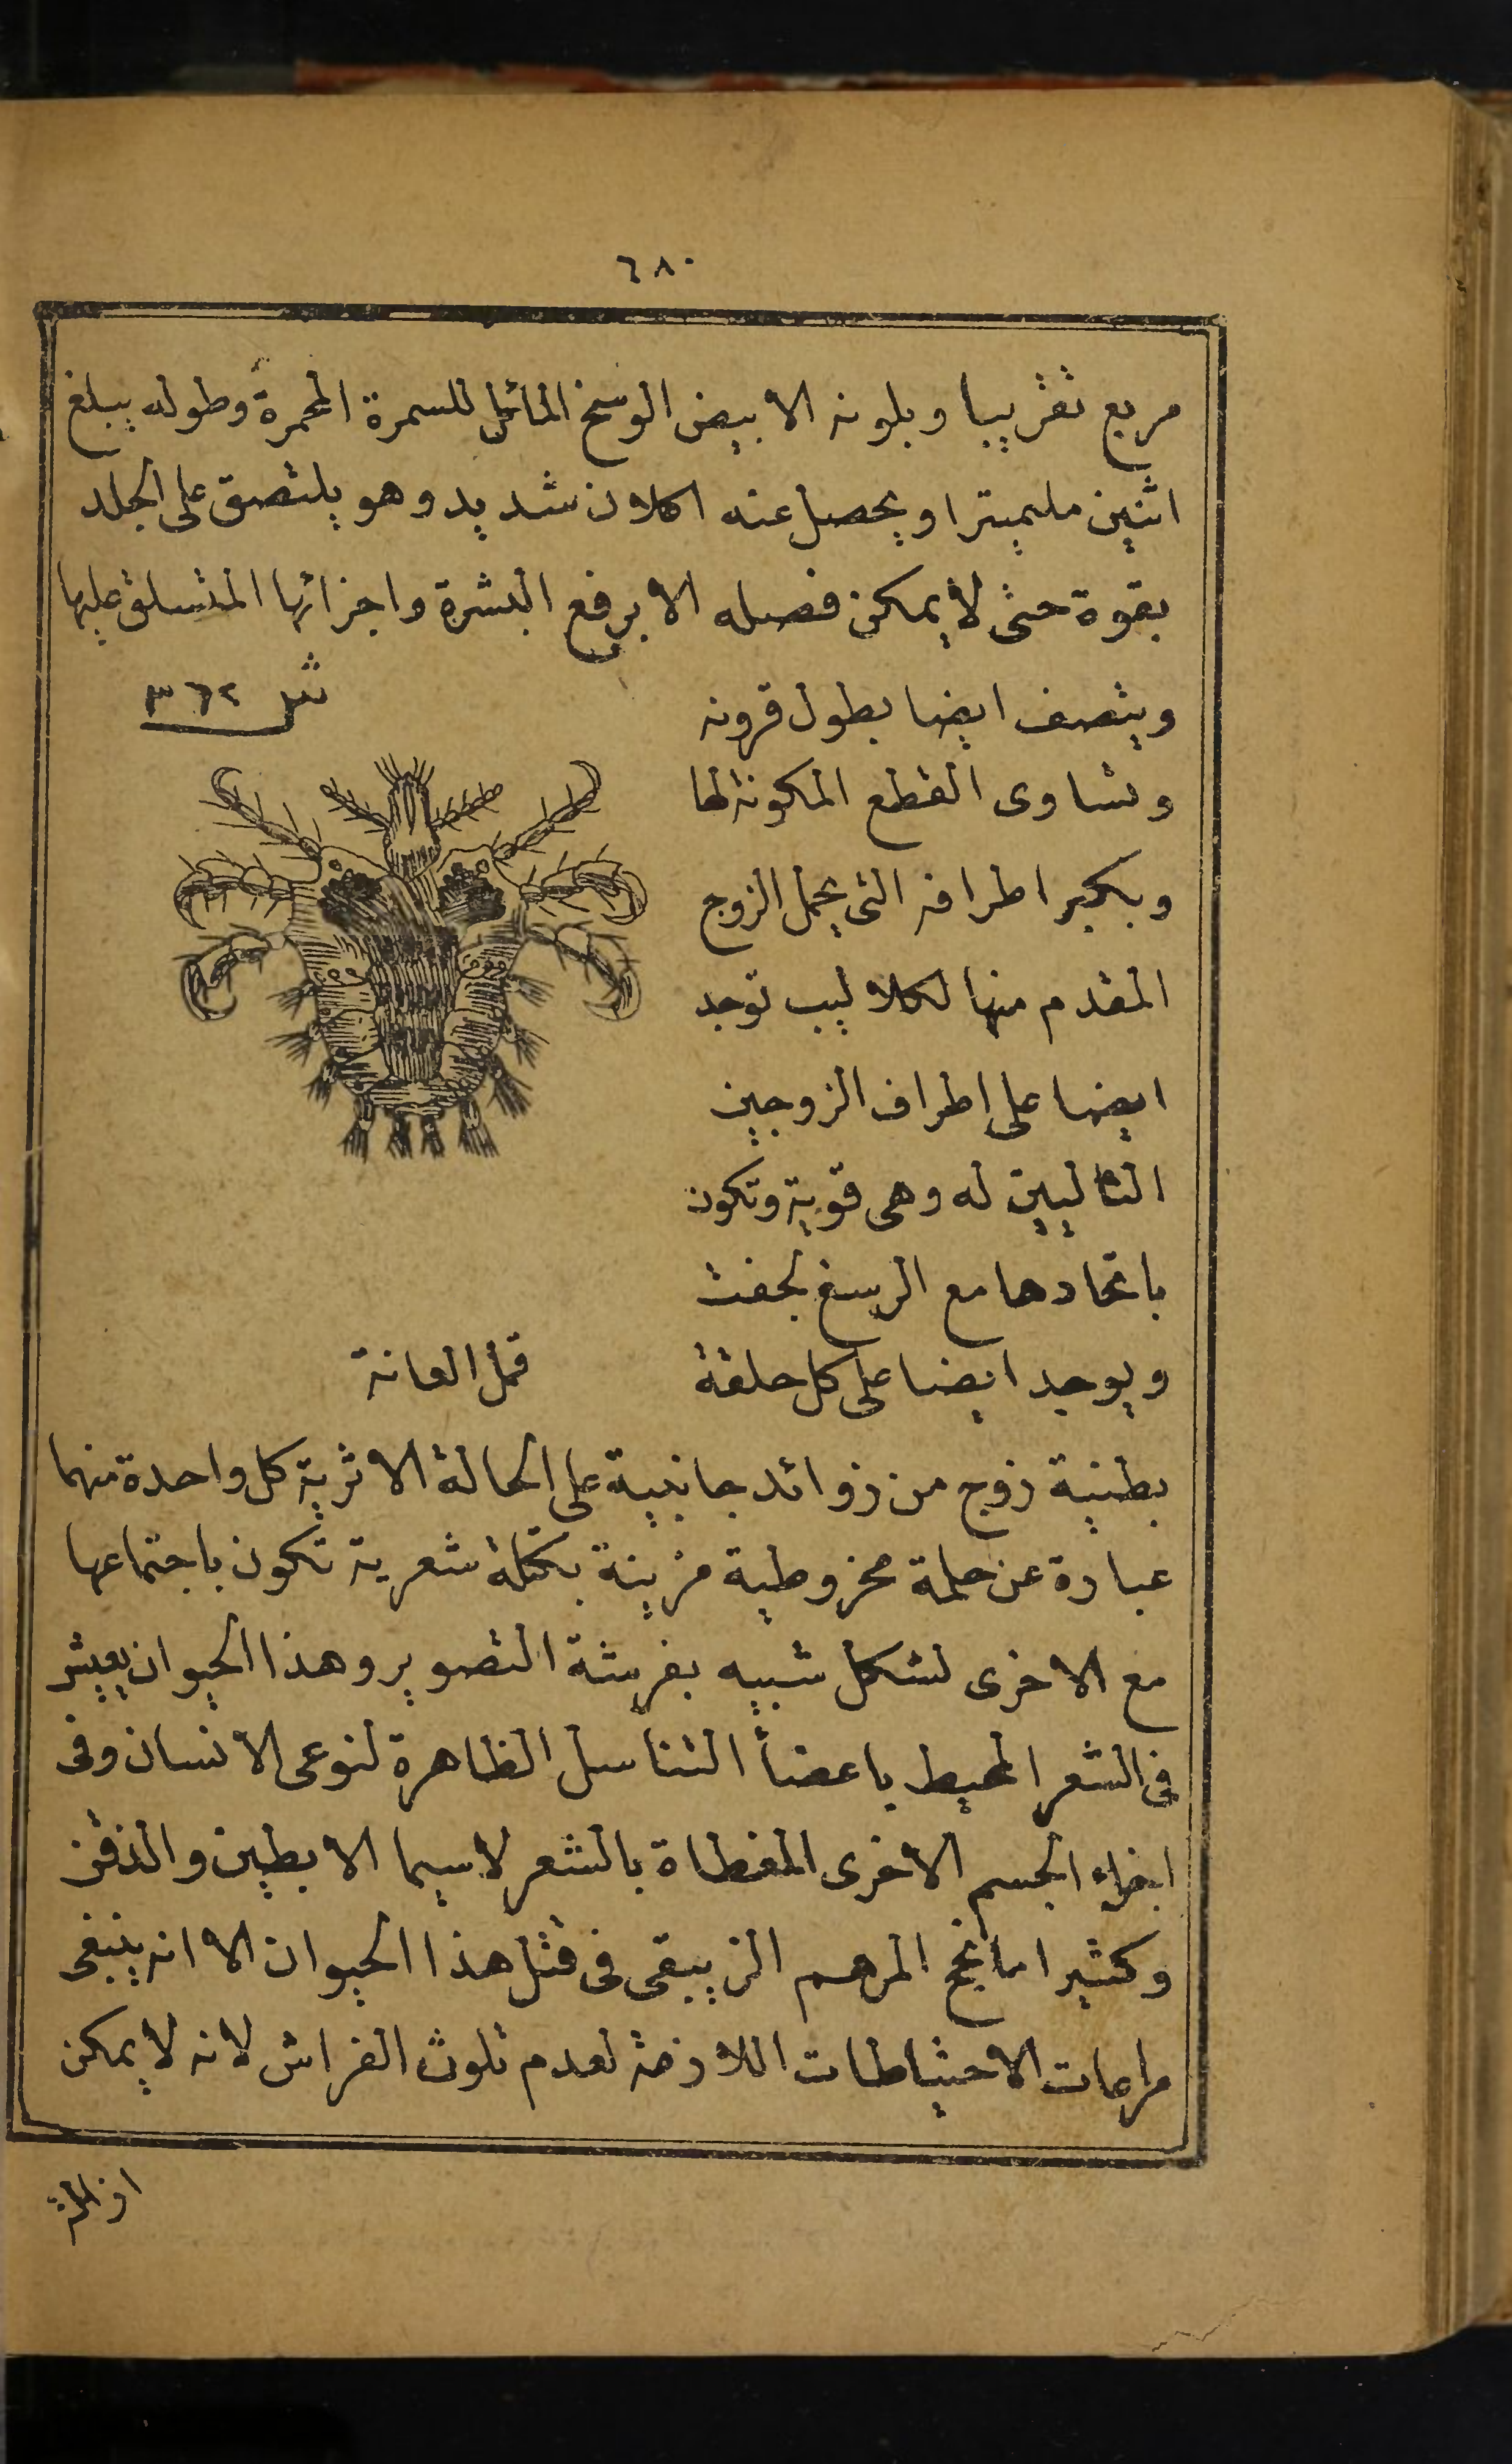 ٦٨٠
مربع تقريبا وبلونه الابيض الوسخ المائل للسمرة المحمرة وطوله يبلغ
اثنين مليميترا ويحصل عنه اكلان شديد وهو يلتصق على الجلد
بقوة حتى لا يمكن فصله الا برفع البشرة واجزائها المتسلق عليها
شكل ٣٦٢
ويتصف ايضا بطول قرونه
وتساوى القطع المكونة لها
وبكبر اطرافه التى يحمل الزوج
المقدم منها لكلاليب توجد
ايضا على اطراف الزوجين
التاليين له وهى قوية وتكون
باتحادها مع الرسغ لجفت
ويوجد ايضا على كل حلقة
قمل العانة
بطنية زوج من زوائد جانبية على الحالة الاثرية كل واحدة منهما
عبارة عن حلمة مخروطية مزينة بكتلة شعرية تكون باجتماعها
مع الاخرى لشكل شبيه بفرشة التصوير وهذا الحيوان يعيش
فى الشعر المحيط باعضأ التناسل الظاهرة لنوعى الانسان وفى
اجزاء الجسم الاخرى المغطاة بالشعر لاسيما الابطين والذقن
وكثيرا ما نجح المرهم الزيبقى فى قتل هذا الحيوان الا انه ينبغى
مراعات الاحتياطات اللازمة لعدم تلوث الفراش لانه لا يمكن